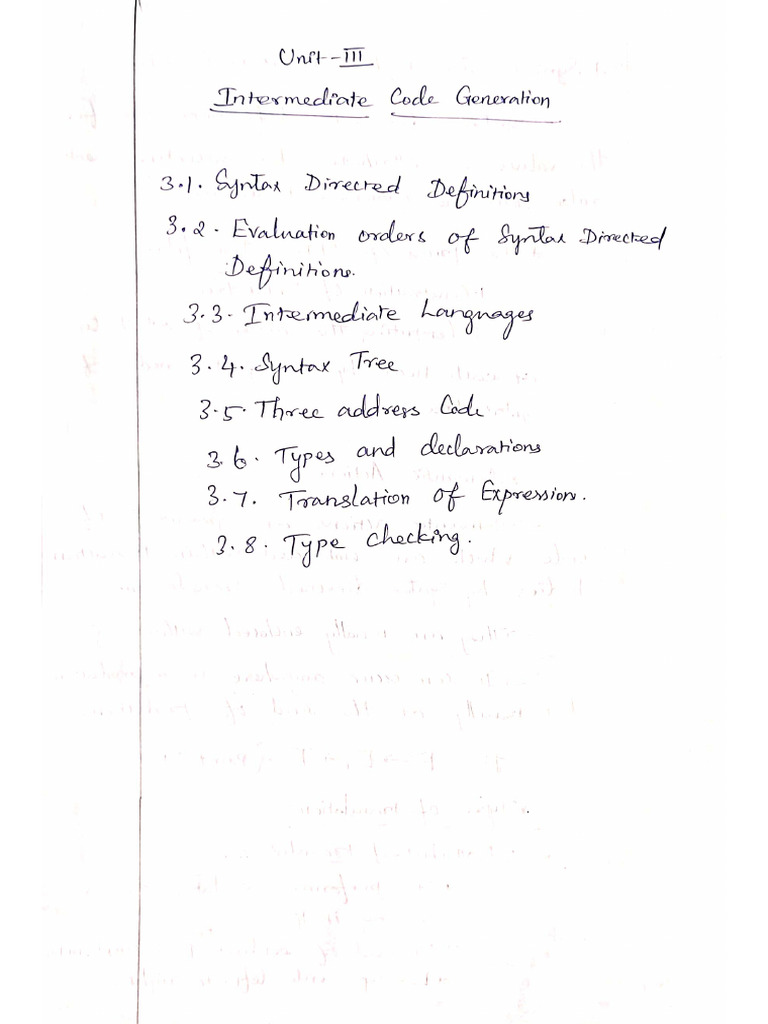 Unit-III
Intermediate Code Generation
3.1. Syntax Directed Definitions
3.2. Evaluation orders of Syntax Directed
Definitions.
3.3. Intermediate Languages
3.4. Syntax Tree
3.5. Three address Code
3.6. Types and declarations
3.7. Translation of Expression.
3.8. Type checking.